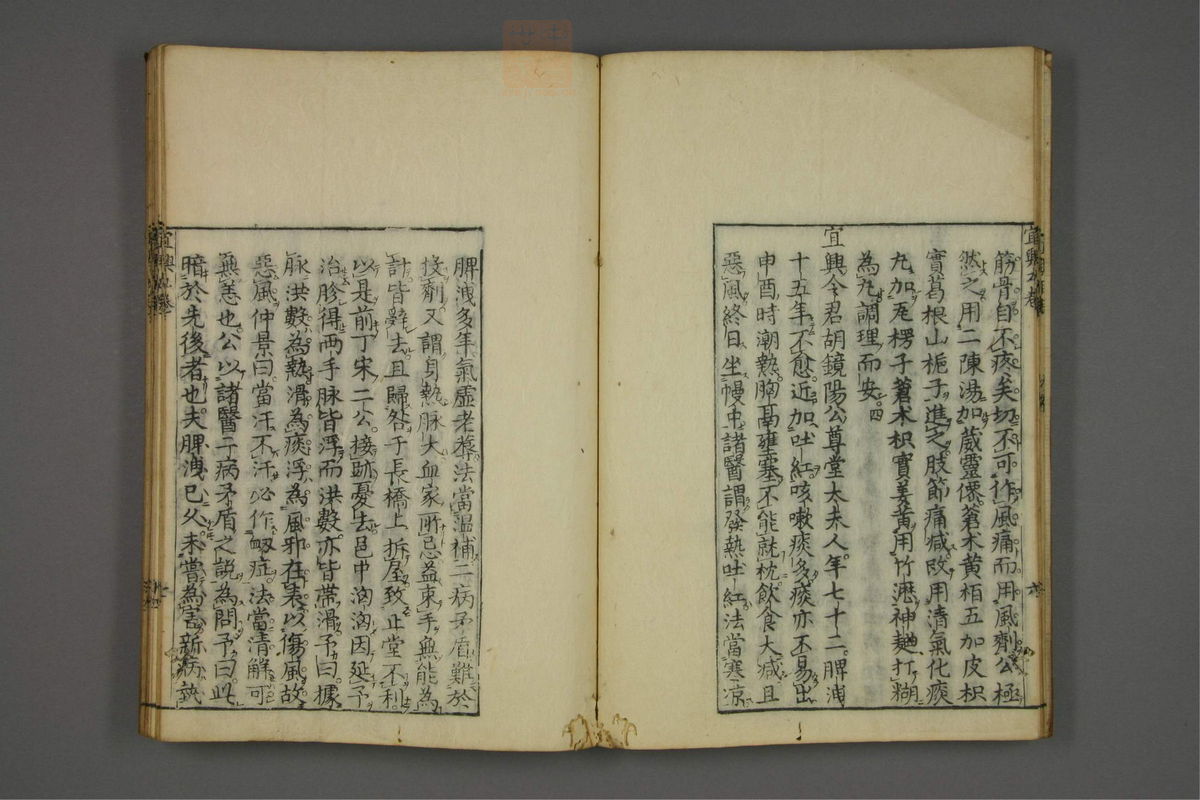 筋骨自不疼矣切不可作風痛而用風劑公極
然之用二陳湯加葳靈僊蒼术黄栢五加皮枳
實葛根山梔子進之肢節痛减改用清氣化痰
九加瓦楞子蒼术枳實姜黄用竹瀝神麯打糊
為九調理而安四
宜興令君胡鏡陽公尊堂太夫人年七十二脾洩
十五年不愈近加吐紅咳嗽痰多痰亦不易出
申酉時潮熱胸鬲雍塞不能就枕飲食大减且
惡風終日坐幔中諸醫謂發熱吐紅法當寒凉
脾洩多年氣虛老蒸法當温補二病矛盾難於
投劑又謂身熱脉大血家所忌益束手無能為
計皆辭去且歸咎于長橋上拆屋致止堂不利
以是前丁宋二公接跡憂去邑中洶洶因延予
治胗得两手脉皆浮而洪數亦皆帯滑予曰據
脉洪數為熱滑為痰浮為風邪在表以傷風故
惡風仲景曰當汗不汗必作衂症法當清解可
無恙也公以諸醫二病矛盾之説為問予曰此
暗於先後者也夫脾洩已久未嘗為害新病孰
宜興